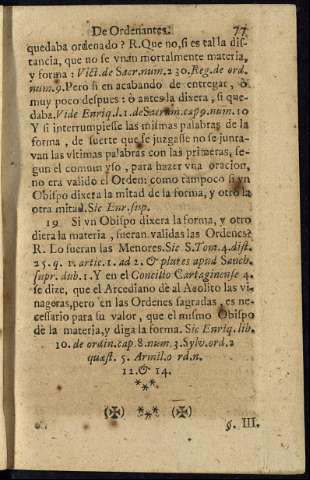 De Ordenantes. 77
quedaba ordenado? R. Que no, si es tal la dis-
tancia, que no se vnan mortalmente materia,
y forma: Vici. de Sacr. num. 230. Reg. de ord.
num. 9. Pero si en acabando de entregar, ò
muy poco despues: ò antes la dixera, si que-
daba. Vide Enriq. l. 1. de Sacram. cap 9. num. 10
Y si interrumpiesse las mismas palabras de la
forma, de suerte que se juzgasse no se junta-
van las vltimas palabras con las primeras, se-
gun el comun vso, para hazer vna oracion,
no era valido el Orden: como tampoco si vn
Obispo dixera la mitad de la forma, y otro la
otra mitad. Sic Enr. sup.
19 Si vn Obispo dixera la forma, y otro
diera la materia, fueran validas las Ordenes?
R. Lo fueran las Menores. Sic S. Tom. 4. dist.
25. q. 1. artic. 1. ad 2. & plures apud Sanch.
supr. dub. 1. Y en el Concilio Cartaginense 4.
se dize, que el Arcediano dè al Acolito las vi-
nageras, pero en las Ordenes sagradas, es ne-
cessario para su valor, que el mismo Obispo
dè la materia, y diga la forma. Sic Enriq. lib.
10. de ordin. cap. 8. num. 3. Sylv. ord. 2
quæst. 5. Armil. o rd. n.
12. & 14.
§. III.